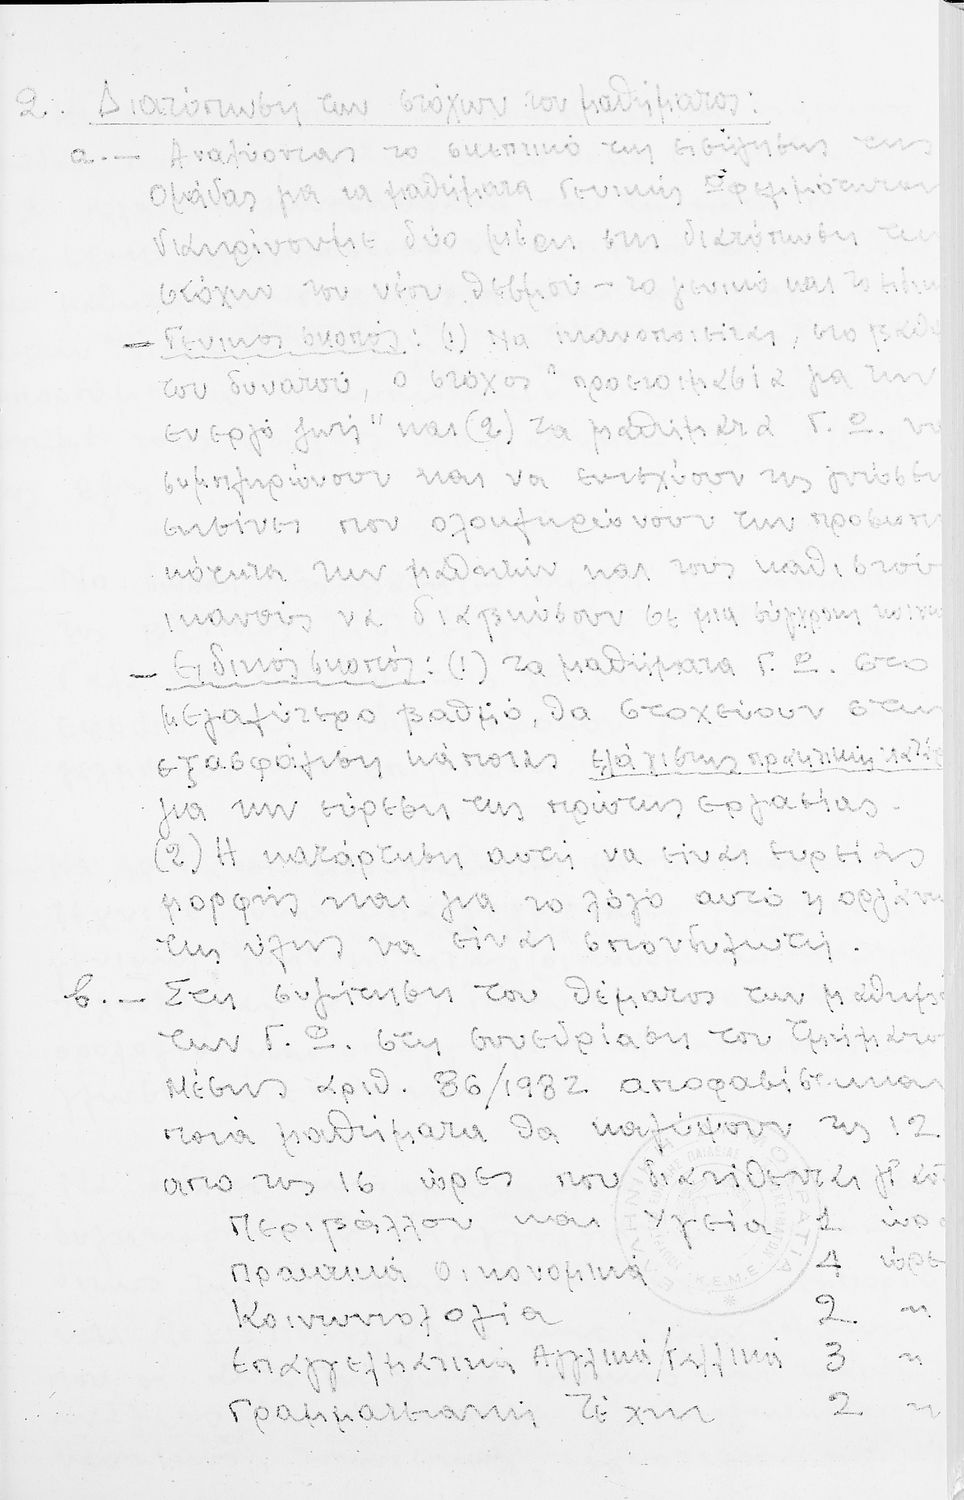 2. Διατύπωση των στόχων του μαθήματος:
α.— Αναλύοντας το σκεπτικό της εισήγησης της
Ομάδας για τα μαθήματα Γενικής Ωφελιμότητας
διακρίνουμε δύο μέρη στη διατύπωση των
στόχων του νέου θεσμού – το γενικό και το
— Γενικός σκοπός: (1) Να ικανοποιείται, στο
του δυνατού, ο στόχος "προετοιμασία για την
ενεργό ζωή" και (2) τα μαθήματα Γ. Ω. να
συμπληρώνουν και να ενισχύουν τις
εκείνες που ολοκληρώνουν την προσωπι
κότητα των μαθητών και τους καθιστούν
ικανούς να διαβιώσουν σε μια σύγχρονη
— Ειδικός σκοπός: (1) τα μαθήματα Γ. Ω. στο
μεγαλύτερο βαθμό, θα στοχεύουν στην
εξασφάλιση κάποιας ελάχιστης πρακτικής
για την εύρεση της πρώτης εργασίας.
(2) Η κατάρτιση αυτή να είναι ευρείας
μορφής και για το λόγο αυτό η
της ύλης να είναι σπονδυλωτή.
β.— Στη συζήτηση του θέματος των
των Γ. Ω. στη συνεδρίαση του Τμήματος
Μέσης αριθ. 86/1982 αποφασίστηκαν
ποιά μαθήματα θα καλύψουν τις 12
από τις 16 ώρες που διατίθενται γι'
Περιβάλλον και Υγεία 1 ώρα
Πρακτικά Οικονομικά 4 ώρες
Κοινωνιολογία 2 "
Επαγγελματική Αγγλικά/Γαλλικά 3 "
Γραμματειακή Τέχνη 2 "
Κ.Ε.Μ.Ε.